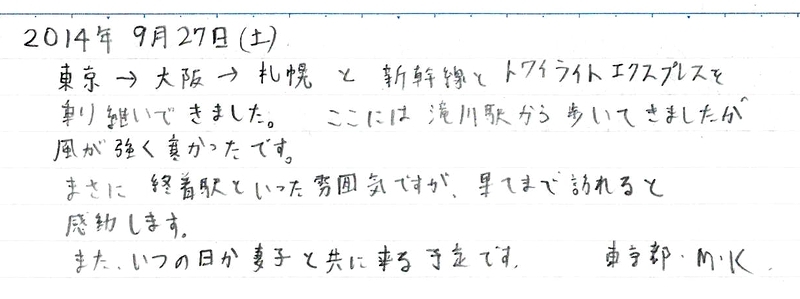 2014年 9月27日(土)
東京→大阪→札幌 と 新幹線と トワイライトエクスプレスを
乗り継いできました。 ここには 滝川駅から歩いてきましたが
風が強く寒かったです。
まさに 終着駅といった雰囲気ですが、果てまで訪れると
感動します。
また、いつの日か妻子と共に来る予定です。 東京都・M・K.